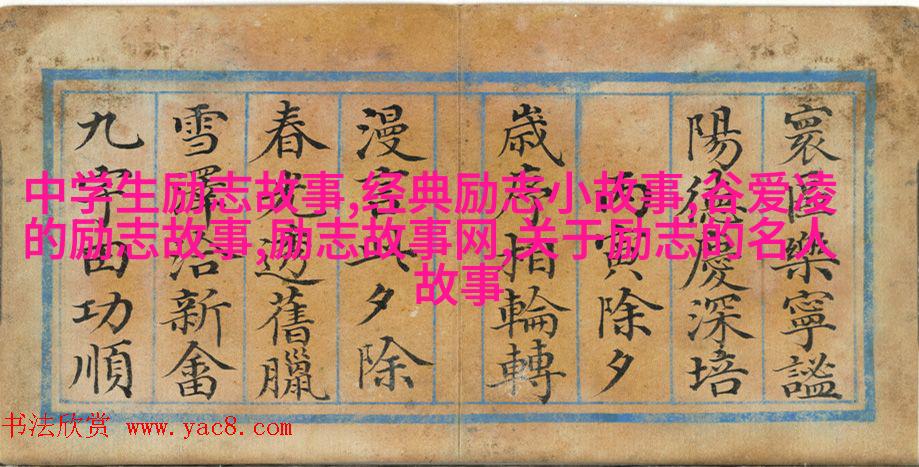 中学生励志故事,经典励志小故事,谷爱凌
的励志故事,励志故事网,关于励志的名人
故事
寰區樂寧謐
陽德慶深培
丙寅除夕
歲序指輪轉
漫言此夕除
春 舊臘
雪澤洽新畬
九宇 功順
书法欣赏 www.yac8.com